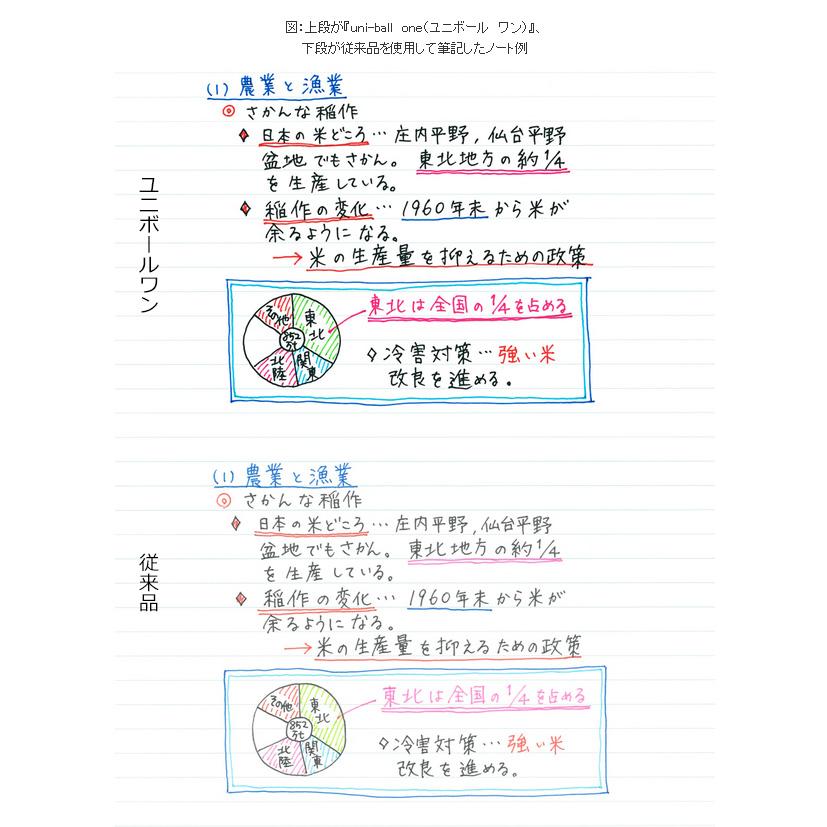 図：上段が『uni-ball one（ユニボール ワン）』、
下段が従来品を使用して筆記したノート例
ユニボールワン
(1) 農業と漁業
◎ さかんな稲作
◆ 日本の米どころ… 庄内平野, 仙台平野
盆地でもさかん。 東北地方の約1/4
を生産している。
◆ 稲作の変化… 1960年末から米が
余るようになる。
→ 米の生産量を抑えるための政策
その他
東北
852万t
北陸
関東
東北は全国の1/4を占める
◇冷害対策…強い米
改良を進める。
従来品
(1) 農業と漁業
◎ さかんな稲作
◆ 日本の米どころ… 庄内平野, 仙台平野
盆地でもさかん。 東北地方の約1/4
を生産している。
◆ 稲作の変化… 1960年末から米が
余るようになる。
→ 米の生産量を抑えるための政策
その他
東北
852万t
北陸
関東
東北は全国の1/4を占める
◇冷害対策…強い米
改良を進める。